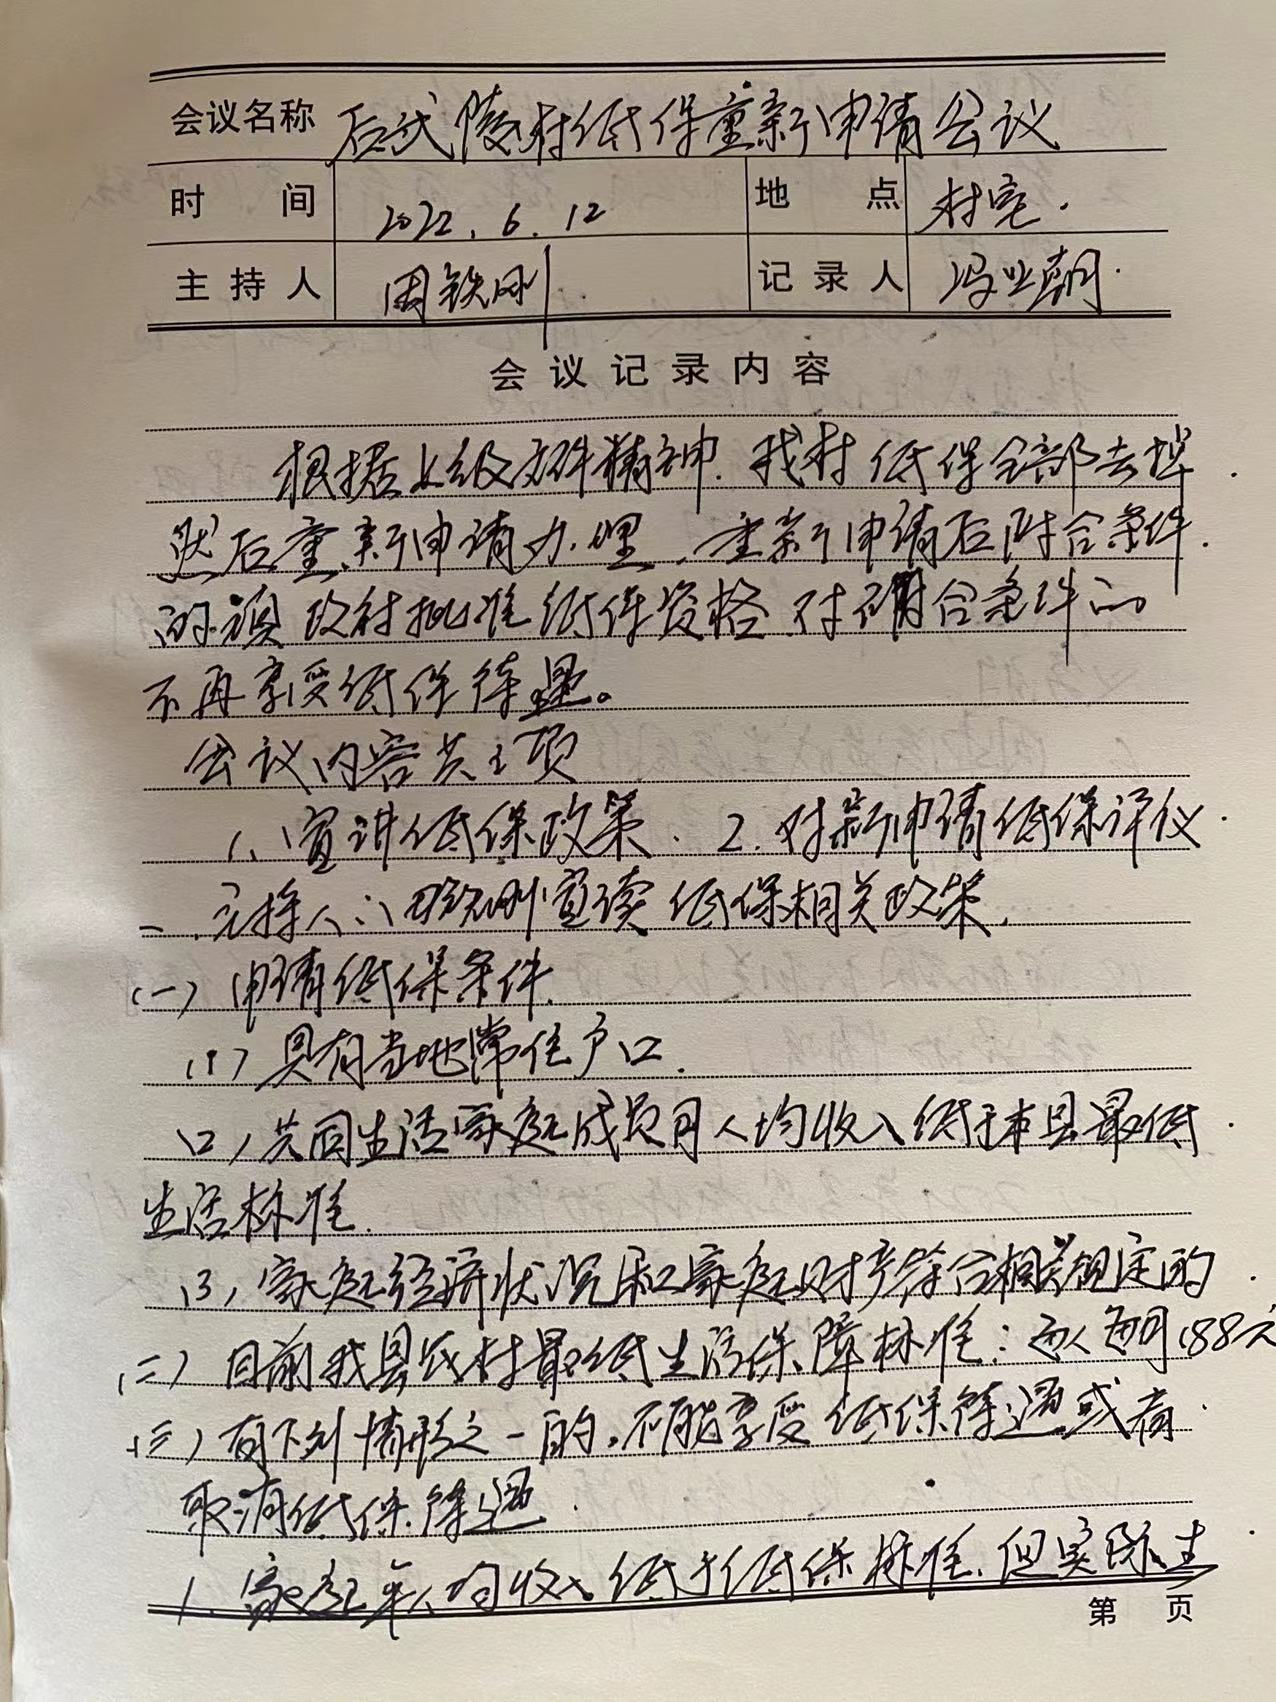 会议名称 后武陵村低保重新申请会议
时间 2022.6.12 地点 村宅.
主持人 田铁刚 记录人 冯业朝
会议记录内容
根据上级文件精神. 我村低保全部去掉.
然后重新申请办理, 重新申请后附合条件.
的须政村批准低保资格 对不附合条件的
不再享受低保待遇。
会议内容共2项
1、宣讲低保政策. 2. 对新申请低保评议.
一. 主持人: 田铁刚宣读低保相关政策.
(一) 申请低保条件.
(1) 具有当地常住户口.
(2) 共同生活家庭成员月人均收入低于本县最低.
生活标准.
(3) 家庭经济状况和家庭财产符合相关规定的.
(二) 目前我县农村最低生活保障标准: 每人每月188元
(三) 有下列情形之一的. 不能享受低保待遇或者.
取消低保待遇.
1. 家庭年人均收入低于低保标准. 但实际生
第 页